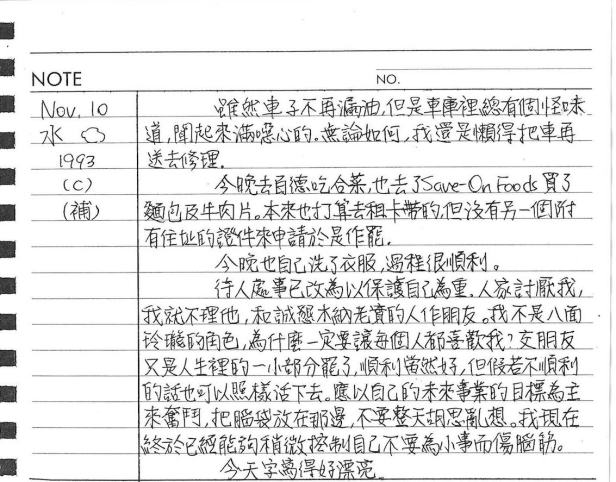 NOTE
NO.
Nov. 10
水
1993
(C)
(補)
雖然車子不再漏油,但是車庫裡總有個怪味
道,聞起來滿噁心的。無論如何,我還是懶得把車再
送去修理.
今晚去百德吃合菜,也去了Save-On Foods買了
麵包及牛肉片。本來也打算去租卡帶的,但沒有另一個附
有住址的證件來申請於是作罷.
今晚也自己洗了衣服,過程很順利。
待人處事已改為以保護自己為重.人家討厭我,
我就不理他,和誠懇木納老實的人作朋友。我不是八面
玲瓏的角色,為什麼一定要讓每個人都喜歡我?交朋友
又是人生裡的一小部分罷了,順利當然好,但假若不順利
的話也可以照樣活下去。應以自己的未來事業的目標為主
來奮鬥,把腦袋放在那邊,不要整天胡思亂想。我現在
終於已經能夠稍微控制自己不要為小事而傷腦筋。
今天字寫得好漂亮.